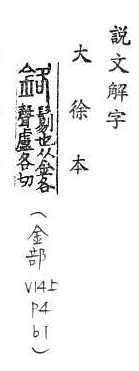 說文解字
大徐本
鉻 鬄也从金各
聲盧各切
(金部 V14上 P4 b1)